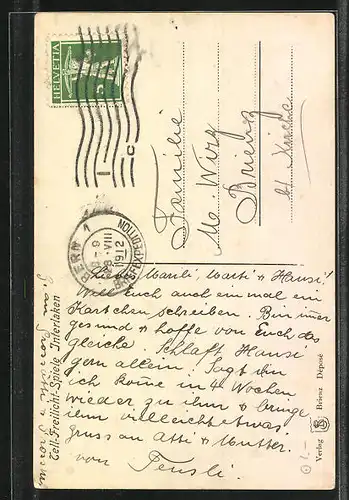 HELVETIA
5
BERN 1
8.VIII
1912
BRIEFEXPEDITION
Familie
M. Wirz
Brienz
Liebe Mauli, Marti & Hansi!
Will Euch auch ein mal ein
Kärtchen schreiben. Bin imer
gesund & hoffe von Euch das
gleiche. Schlaft Hansi
gern allein. Sagt ihm
ich kome in 4 Wochen
wieder zu ihm & bringe
ihm vielleicht etwas.
Gruss an Atti & Mutter.
von
Tell-Freilicht-Spiele Interlaken
Verlag Brienz Déposé